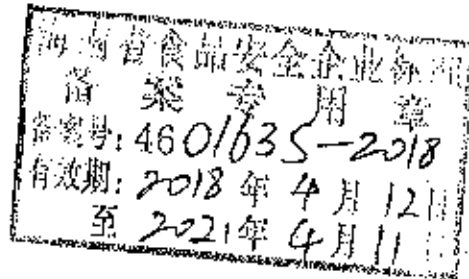 海南省食品安全企业标准
备案专用章
备案号: 4601635-2018
有效期: 2018年4月12日
至 2021年4月11日